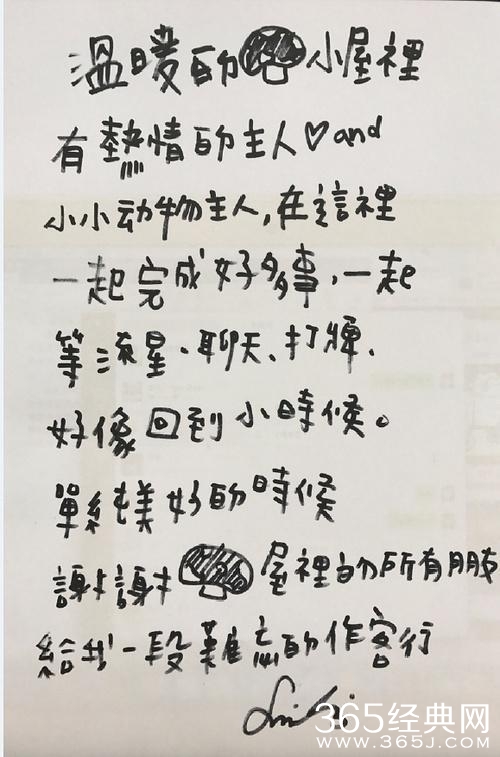 溫暖的小屋裡
有熱情的主人♡and
小小动物主人,在這裡
一起完成好多事,一起
等流星、聊天、打牌、
好像回到小時候。
單純美好的時候
謝謝屋裡的所有朋友
給我一段難忘的作客行
365经典网
WWW.365J.COM